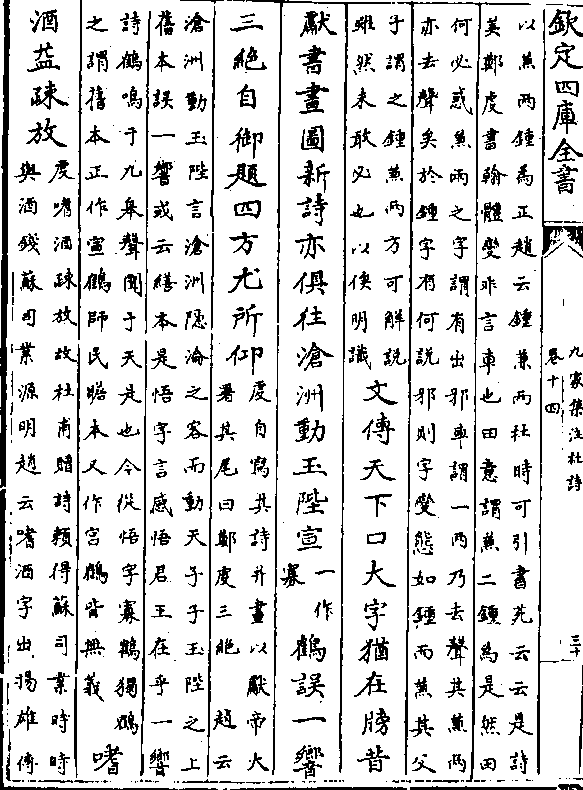 欽定四庫全書
九家集注杜詩
卷十四
三十
以兼兩鍾為正趙云鍾兼兩杜時可引書苑云云是詩
美鄭虔書翰體變非言車也田意謂兼二鍾為是然田
何必惑兼兩之字謂有出邪車謂一兩乃去聲其兼兩
亦去聲矣於鍾字有何説邪則字變態如鍾而兼其父
子謂之鍾兼兩方可解説
雖然未敢必也以俟明識
文傳天下口大字猶在牓昔
獻書畫圖新詩亦俱往滄洲動玉陛宣
一作
寡
鶴誤一響
三絶自御題四方尤所仰
虔自寫其詩并畫以獻帝大
署其尾曰鄭虔三絶 趙云
滄洲動玉陛言滄洲隱淪之客而動天子于玉陛之上
舊本誤一響或云繕本是悟字言感悟君王在乎一響
詩鶴鳴于九皋聲聞于天是也今從悟字寡鶴獨鶴
之謂舊本正作宣鶴師民瞻本又作宮鶴皆無義
嗜
酒益疎放
虔嗜酒疎放故杜甫贈詩頼得蘇司業時時
與酒錢蘇司業源明趙云嗜酒字出揚雄傳